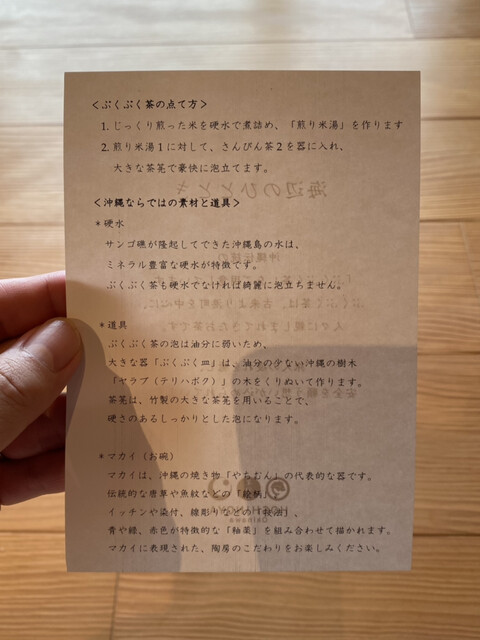 ＜ぶくぶく茶の点て方＞
1. じっくり煎った米を硬水で煮詰め、「煎り米湯」を作ります
2. 煎り米湯１に対して、さんぴん茶２を器に入れ、
大きな茶筅で豪快に泡立てます。
＜沖縄ならではの素材と道具＞
＊硬水
サンゴ礁が隆起してできた沖縄島の水は、
ミネラル豊富な硬水が特徴です。
ぶくぶく茶も硬水でなければ綺麗に泡立ちません。
＊道具
ぶくぶく茶の泡は油分に弱いため、
大きな器「ぶくぶく皿」は、油分の少ない沖縄の樹木
「ヤラブ（テリハボク）」の木をくりぬいて作ります。
茶筅は、竹製の大きな茶筅を用いることで、
硬さのあるしっかりとした泡になります。
＊マカイ（お碗）
マカイは、沖縄の焼き物「やちむん」の代表的な器です。
伝統的な唐草や魚紋などの「絵柄」、
イッチンや染付、線彫りなどの「技法」、
青や緑、赤色が特徴的な「釉薬」を組み合わせて描かれます。
マカイに表現された、陶房のこだわりをお楽しみください。
海辺のひととき